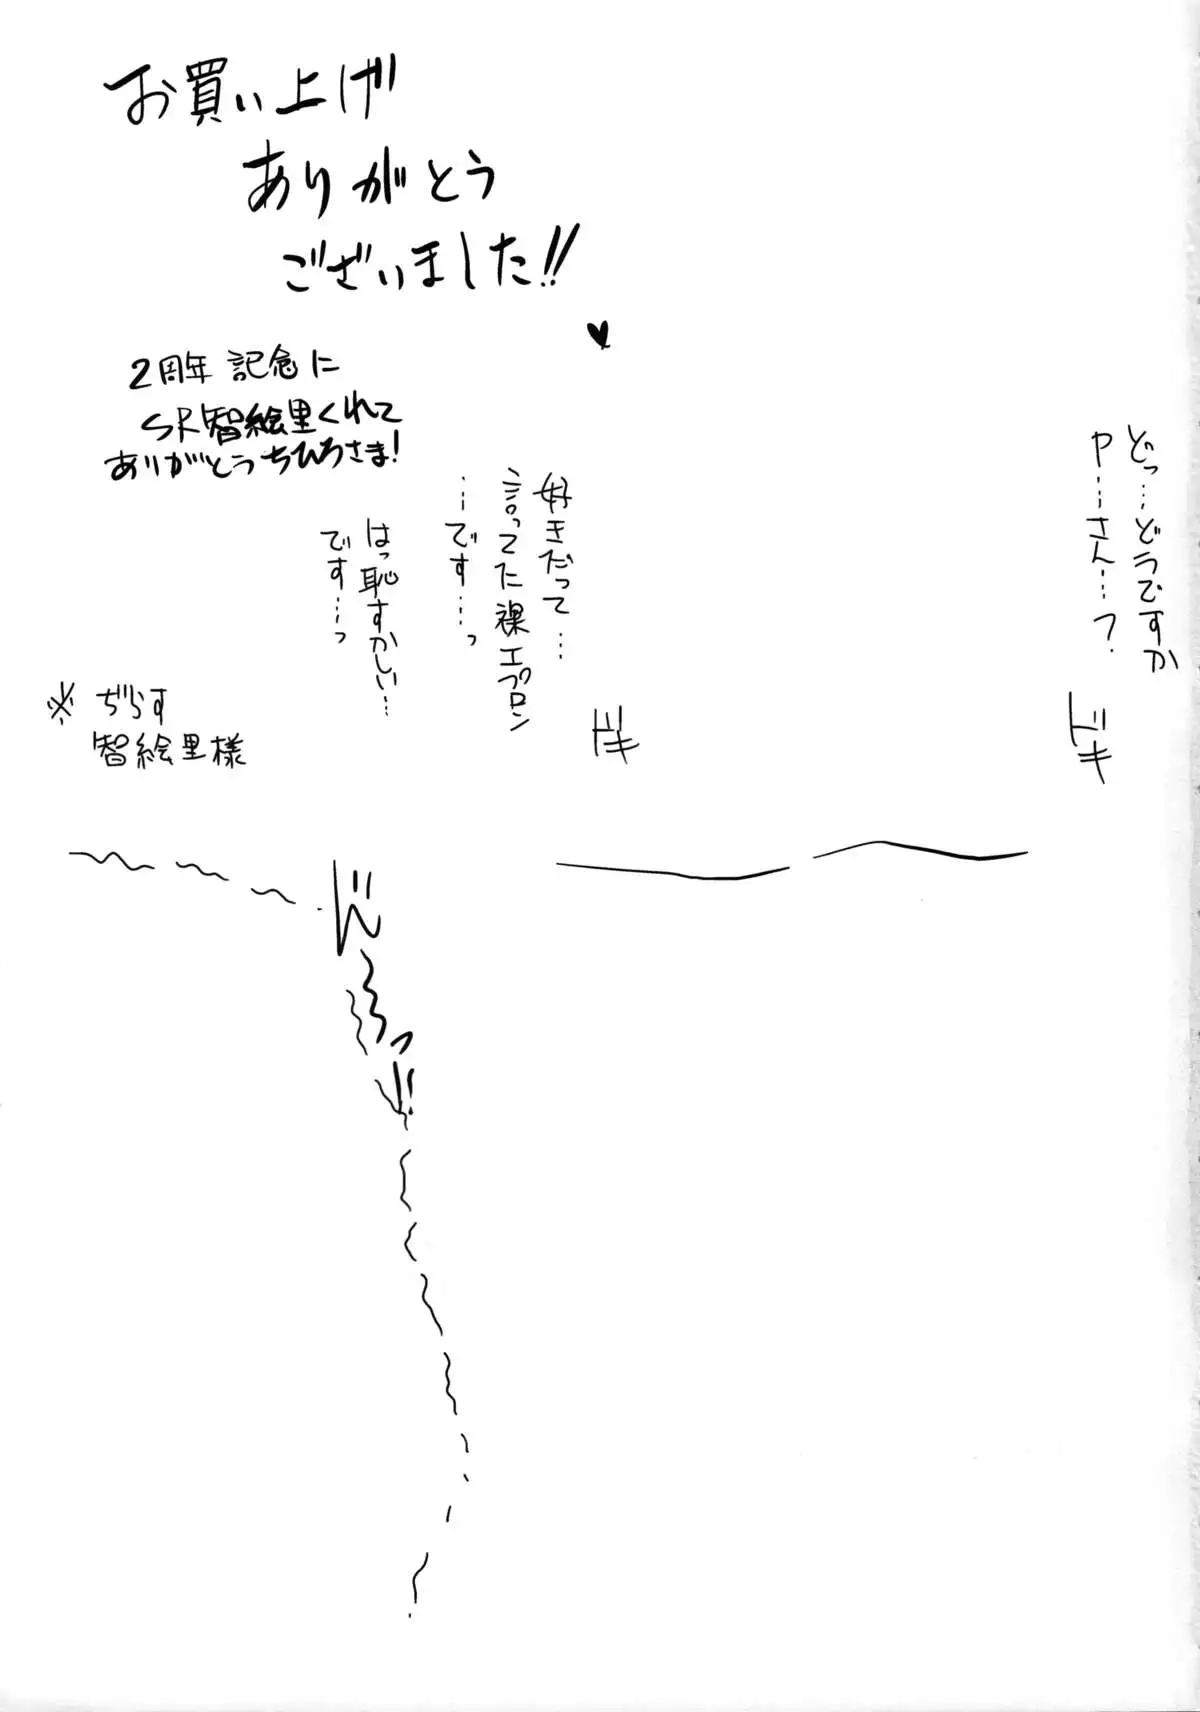 お買い上げ
ありがとう
ございました!!
♥
2周年 記念に
SR智絵里くれて
ありがとうちひろさま!
どっ…どうですか
P…さん…?
ドキ
好きだって…
言ってた裸エプロン
…です…っ
ドキ
はっ恥すかしい…
です…っ
※ぢらす
智絵里様